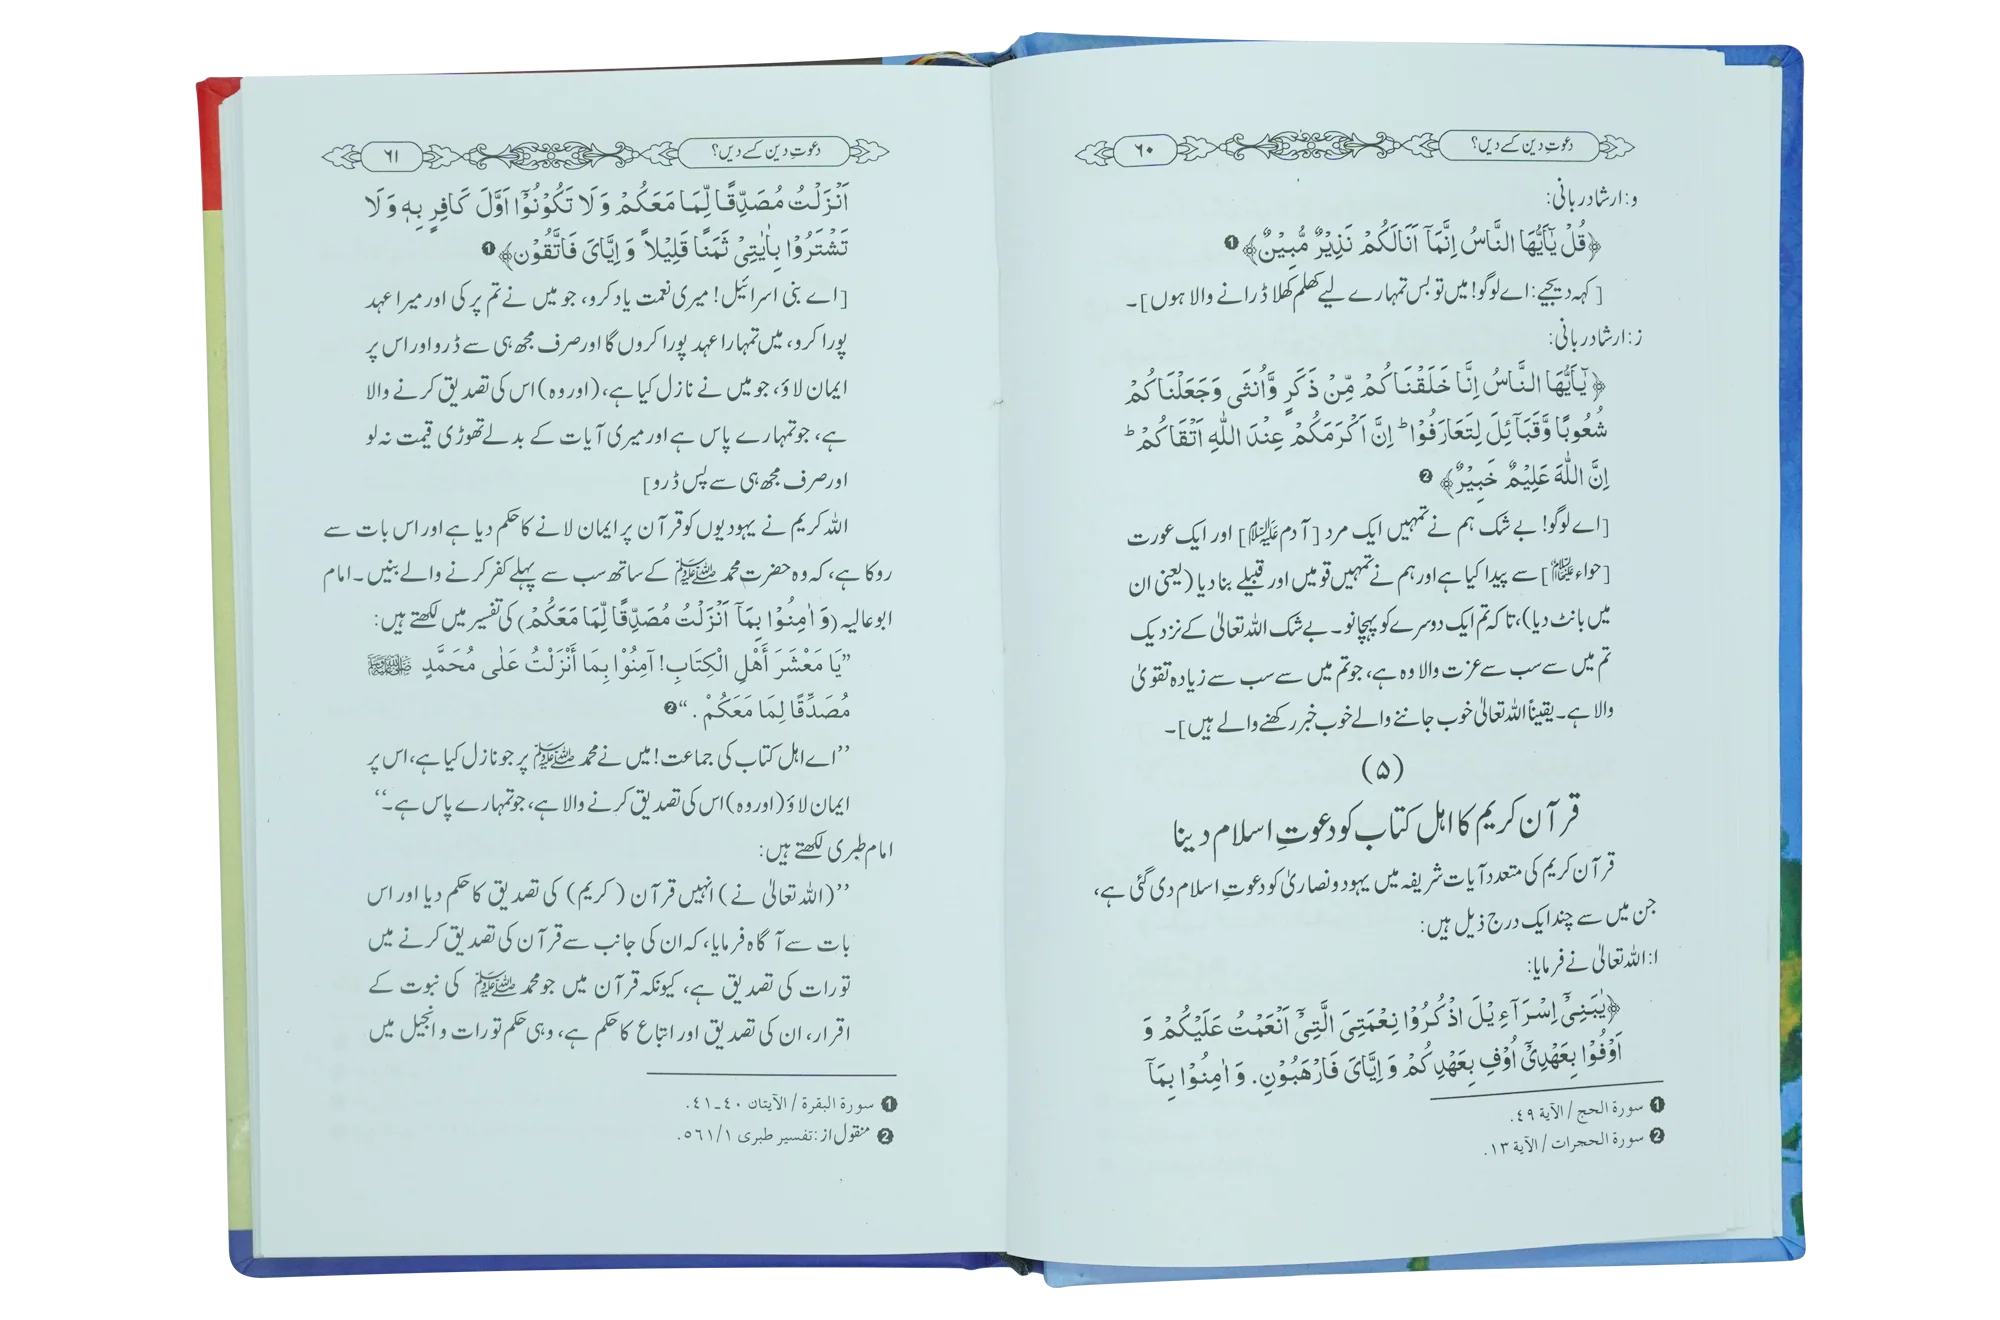 دعوتِ دین کسے دیں؟
۶۰
و: ارشادِ ربانی:
﴿قُلْ يٰٓاَيُّهَا النَّاسُ اِنَّمَآ اَنَا لَكُمْ نَذِيْرٌ مُّبِيْنٌ﴾ ❶
[کہہ دیجیے: اے لوگو! میں تو بس تمہارے لیے کھلم کھلا ڈرانے والا ہوں]۔
ز: ارشادِ ربانی:
﴿يٰٓاَيُّهَا النَّاسُ اِنَّا خَلَقْنَاكُمْ مِّنْ ذَكَرٍ وَّاُنثَى وَجَعَلْنَاكُمْ
شُعُوبًا وَّقَبَآئِلَ لِتَعَارَفُوْا ؕ اِنَّ اَكْرَمَكُمْ عِنْدَ اللّٰهِ اَتْقَاكُمْ ؕ
اِنَّ اللّٰهَ عَلِيْمٌ خَبِيْرٌ﴾ ❷
[اے لوگو! بے شک ہم نے تمہیں ایک مرد [آدم علیہ السلام] اور ایک عورت
[حواء علیہا السلام] سے پیدا کیا ہے اور ہم نے تمہیں قومیں اور قبیلے بنا دیا (یعنی ان
میں بانٹ دیا)، تاکہ تم ایک دوسرے کو پہچانو۔ بے شک اللہ تعالیٰ کے نزدیک
تم میں سے سب سے عزت والا وہ ہے، جو تم میں سے سب سے زیادہ تقویٰ
والا ہے۔ یقیناً اللہ تعالیٰ خوب جاننے والے خوب خبر رکھنے والے ہیں]۔
(۵)
قرآن کریم کا اہل کتاب کو دعوتِ اسلام دینا
قرآن کریم کی متعدد آیات شریفہ میں یہود و نصاریٰ کو دعوتِ اسلام دی گئی ہے،
جن میں سے چند ایک درج ذیل ہیں:
ا: اللہ تعالیٰ نے فرمایا:
﴿يٰبَنِيْٓ اِسْرَآءِيْلَ اذْكُرُوْا نِعْمَتِيَ الَّتِيْٓ اَنْعَمْتُ عَلَيْكُمْ وَ
اَوْفُوْا بِعَهْدِيْٓ اُوْفِ بِعَهْدِكُمْ وَ اِيَّايَ فَارْهَبُوْنِ. وَ اٰمِنُوْا بِمَآ
❶ سورة الحج / الآية ٤٩.
❷ سورة الحجرات / الآية ١٣.
دعوتِ دین کسے دیں؟
۶۱
اَنْزَلْتُ مُصَدِّقًا لِّمَا مَعَكُمْ وَ لَا تَكُوْنُوْٓا اَوَّلَ كَافِرٍ بِهٖ وَ لَا
تَشْتَرُوْا بِاٰيٰتِيْ ثَمَنًا قَلِيْلاً وَ اِيَّايَ فَاتَّقُوْنِ﴾ ❶
[اے بنی اسرائیل! میری نعمت یاد کرو، جو میں نے تم پر کی اور میرا عہد
پورا کرو، میں تمہارا عہد پورا کروں گا اور صرف مجھ ہی سے ڈرو اور اس پر
ایمان لاؤ، جو میں نے نازل کیا ہے، (اور وہ) اس کی تصدیق کرنے والا
ہے، جو تمہارے پاس ہے اور میری آیات کے بدلے تھوڑی قیمت نہ لو
اور صرف مجھ ہی سے پس ڈرو]
اللہ کریم نے یہودیوں کو قرآن پر ایمان لانے کا حکم دیا ہے اور اس بات سے
روکا ہے، کہ وہ حضرت محمد ﷺ کے ساتھ سب سے پہلے کفر کرنے والے بنیں۔ امام
ابو عالیہ (وَ اٰمِنُوْا بِمَآ اَنْزَلْتُ مُصَدِّقًا لِّمَا مَعَكُمْ) کی تفسیر میں لکھتے ہیں:
”يَا مَعْشَرَ أَهْلِ الْكِتَابِ! آمِنُوْا بِمَا أَنْزَلْتُ عَلٰى مُحَمَّدٍ ﷺ
مُصَدِّقًا لِمَا مَعَكُمْ.“ ❷
’’اے اہل کتاب کی جماعت! میں نے محمد ﷺ پر جو نازل کیا ہے، اس پر
ایمان لاؤ (اور وہ) اس کی تصدیق کرنے والا ہے، جو تمہارے پاس ہے۔‘‘
امام طبری لکھتے ہیں:
’’(اللہ تعالیٰ نے) انہیں قرآن (کریم) کی تصدیق کا حکم دیا اور اس
بات سے آگاہ فرمایا، کہ ان کی جانب سے قرآن کی تصدیق کرنے میں
تورات کی تصدیق ہے، کیونکہ قرآن میں جو محمد ﷺ کی نبوت کے
اقرار، ان کی تصدیق اور اتباع کا حکم ہے، وہی حکم تورات و انجیل میں
❶ سورة البقرة / الآيتان ٤٠-٤١.
❷ منقول از: تفسیر طبری ٥٦١/١.